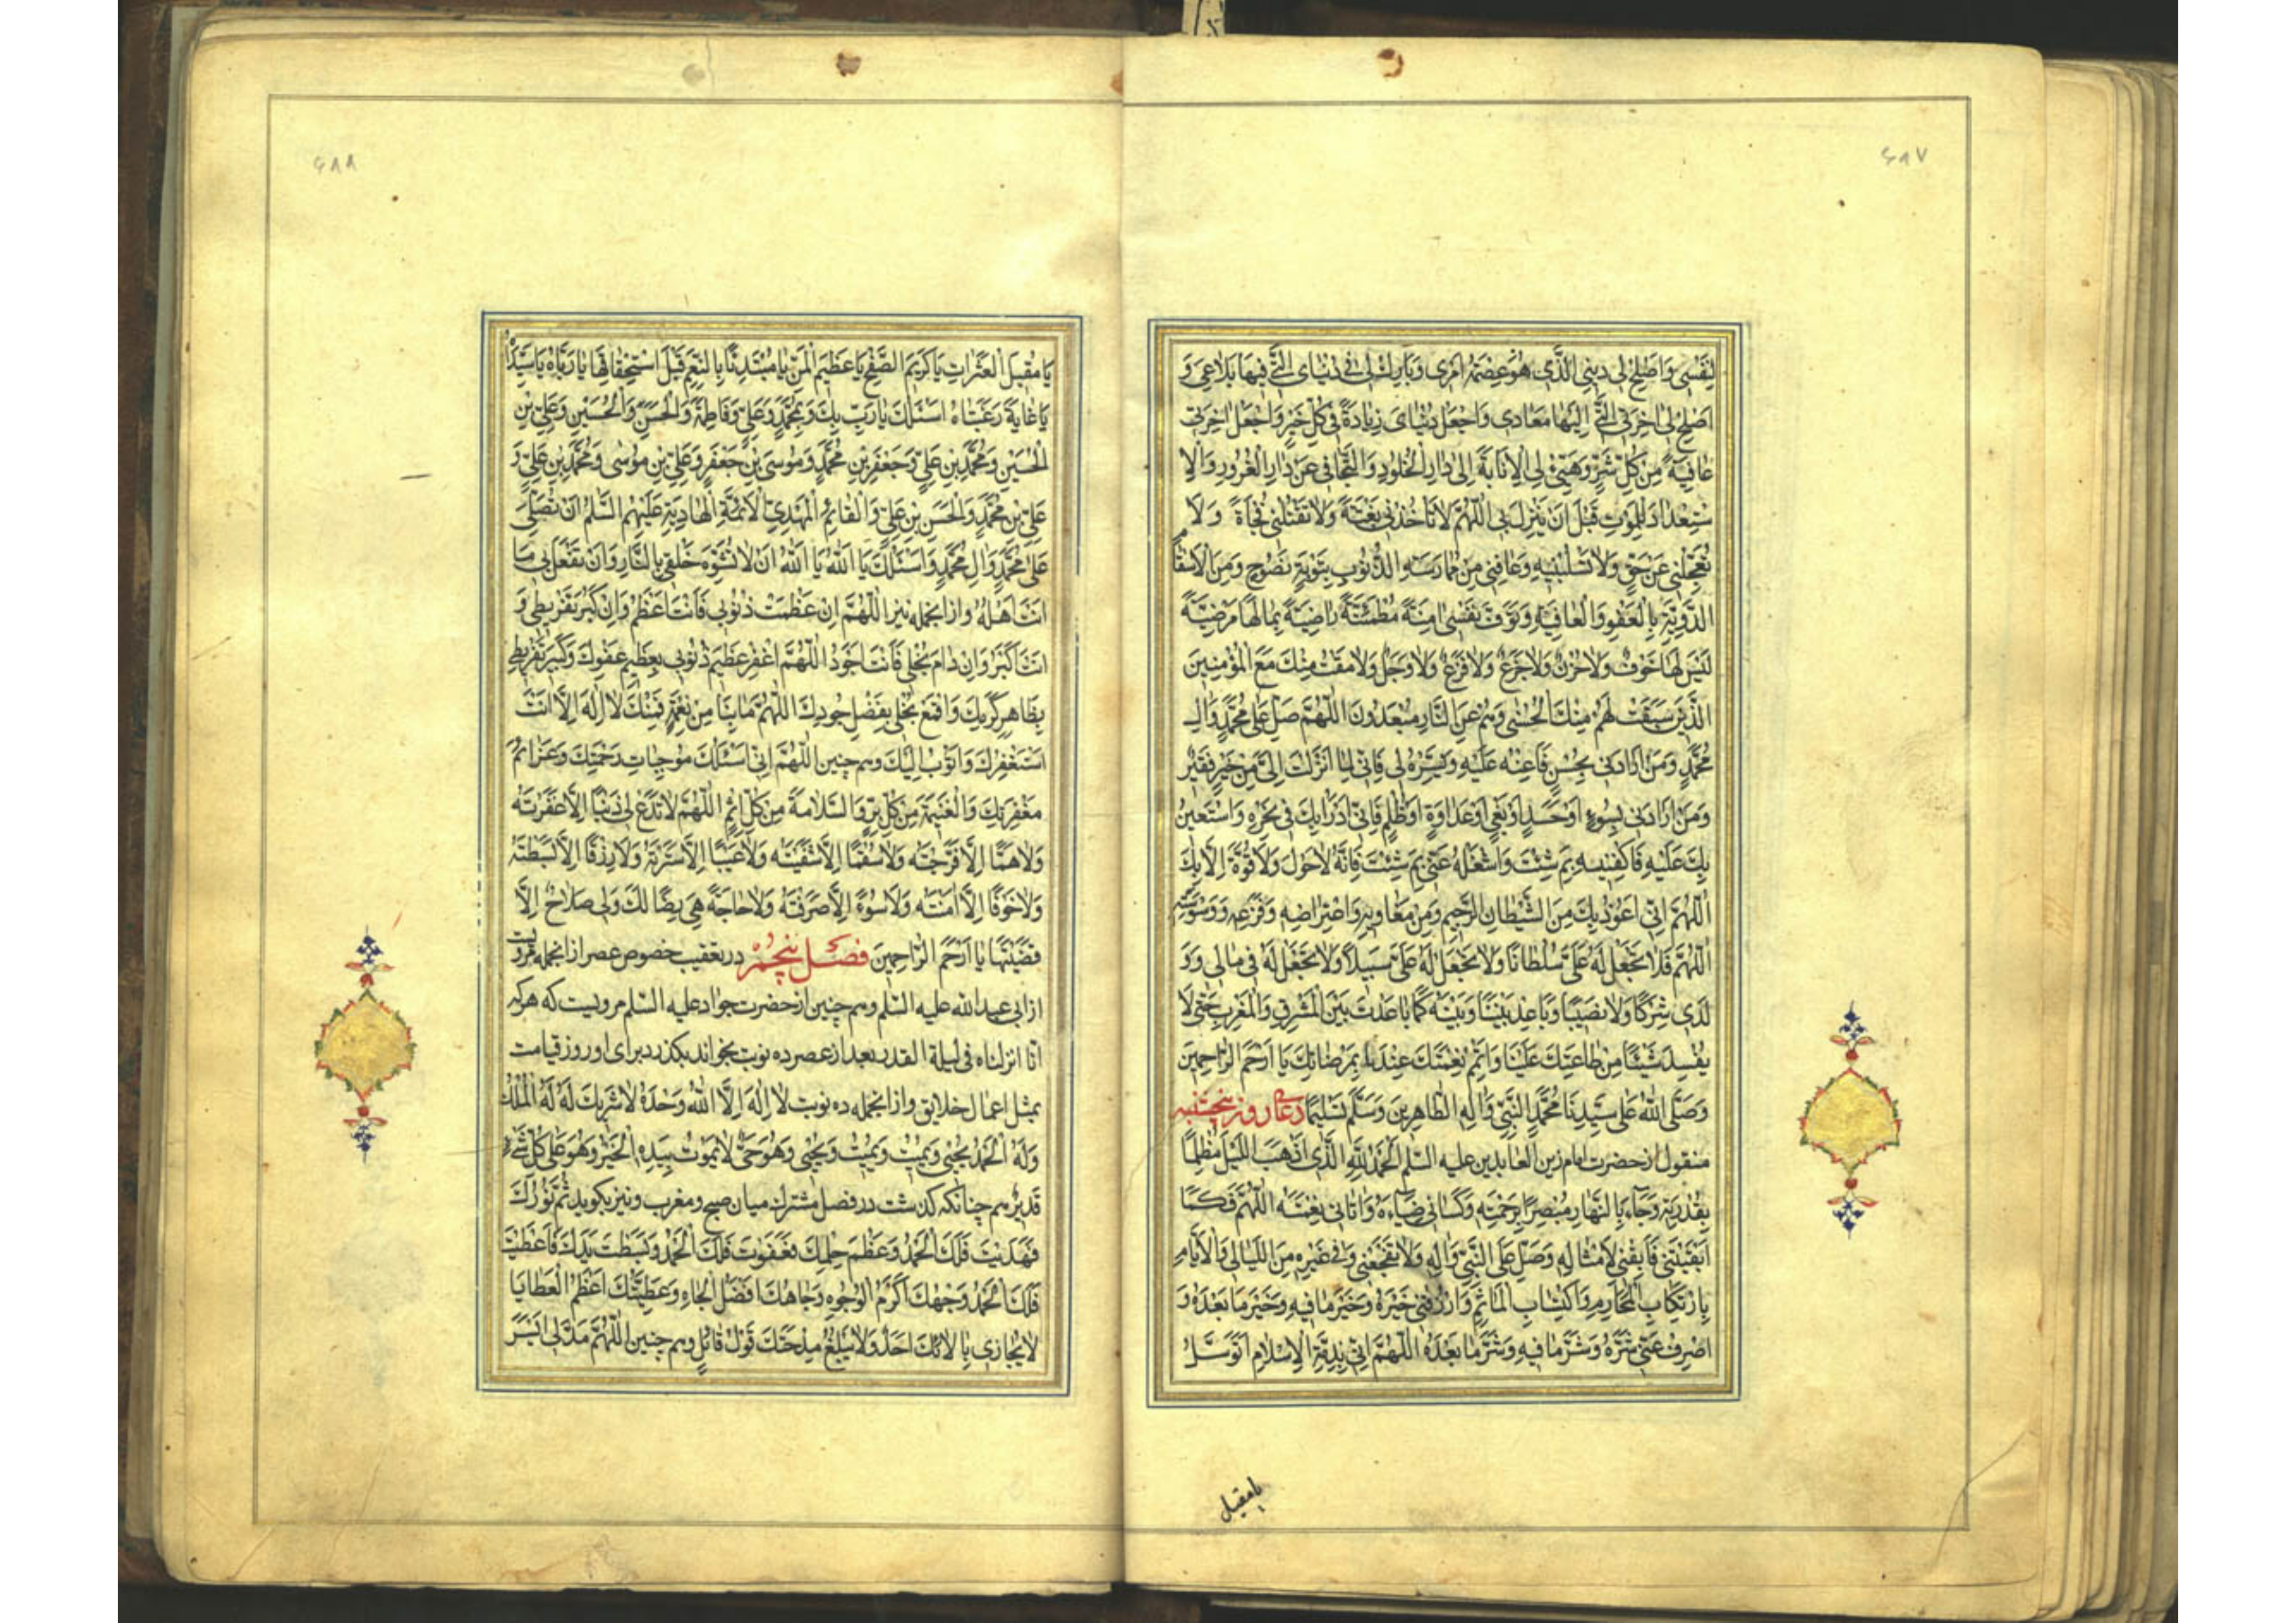 ۶۸۷
لِنَفْسِی وَاَصْلِحْ لِی دِینِیَ الَّذِی هُوَ عِصْمَةُ اَمْرِی وَبَارِكْ لِی فِی دُنْیَایَ الَّتِی فِیهَا بَلَاغِی وَ
اَصْلِحْ لِی اٰخِرَتِیَ الَّتِی اِلَیْهَا مَعَادِی وَاجْعَلْ دُنْیَایَ زِیَادَةً فِی كُلِّ خَیْرٍ وَاجْعَلْ اٰخِرَتِی
عَافِیَةً مِنْ كُلِّ شَرٍّ وَهَیِّئْ لِیَ الْاِنَابَةَ اِلٰی دَارِ الْخُلُودِ وَالتَّجَافِیَ عَنْ دَارِ الْغُرُورِ وَالْاِ
سْتِعْدَادَ لِلْمَوْتِ قَبْلَ اَنْ یَنْزِلَ بِی اَللّٰهُمَّ لَا تَاْخُذْنِی بَغْتَةً وَلَا تَقْتُلْنِی فُجْاَةً وَلَا
تُعَجِّلْنِی عَنْ حَقٍّ وَلَا تَسْلُبْنِیهِ وَعَافِنِی مِنْ مُمَارَسَةِ الذُّنُوبِ بِتَوْبَةٍ نَصُوحٍ وَمِنَ الْاَسْقَامِ
الدَّوِیَّةِ بِالْعَفْوِ وَالْعَافِیَةِ وَتَوَفَّ نَفْسِی اٰمِنَةً مُطْمَئِنَّةً رَاضِیَةً بِمَا لَهَا مَرْضِیَّةً
لَیْسَ لَهَا خَوْفٌ وَلَا حُزْنٌ وَلَا جَزَعٌ وَلَا فَزَعٌ وَلَا وَجَلٌ وَلَا مَقْتٌ مِنْكَ مَعَ الْمُؤْمِنِینَ
الَّذِینَ سَبَقَتْ لَهُمْ مِنْكَ الْحُسْنٰی وَهُمْ عَنِ النَّارِ مُبْعَدُونَ اَللّٰهُمَّ صَلِّ عَلٰی مُحَمَّدٍ وَاٰلِ
مُحَمَّدٍ وَمَنْ اَرَادَنِی بِحُسْنٍ فَاَعِنْهُ عَلَیْهِ وَیَسِّرْهُ لِی فَاِنِّی لِمَا اَنْزَلْتَ اِلَیَّ مِنْ خَیْرٍ فَقِیرٌ
وَمَنْ اَرَادَنِی بِسُوءٍ اَوْ حَسَدٍ اَوْ بَغْیٍ اَوْ عَدَاوَةٍ اَوْ ظُلْمٍ فَاِنِّی اَدْرَاُ بِكَ فِی نَحْرِهِ وَاَسْتَعِینُ
بِكَ عَلَیْهِ فَاكْفِنِیهِ بِمَ شِئْتَ وَاشْغَلْهُ عَنِّی بِمَ شِئْتَ فَاِنَّهُ لَا حَوْلَ وَلَا قُوَّةَ اِلَّا بِكَ
اَللّٰهُمَّ اِنِّی اَعُوذُ بِكَ مِنَ الشَّیْطَانِ الرَّجِیمِ وَمِنْ مَغَاوِیهِ وَاعْتِرَاضِهِ وَفَزَعِهِ وَوَسْوَسَتِهِ
اَللّٰهُمَّ فَلَا تَجْعَلْ لَهُ عَلَیَّ سُلْطَانًا وَلَا تَجْعَلْ لَهُ عَلَیَّ سَبِیلًا وَلَا تَجْعَلْ لَهُ فِی مَالِی وَوَ
لَدِی شِرْكًا وَلَا نَصِیبًا وَبَاعِدْ بَیْنَنَا وَبَیْنَهُ كَمَا بَاعَدْتَ بَیْنَ الْمَشْرِقِ وَالْمَغْرِبِ حَتّٰی لَا
یُفْسِدَ شَیْئًا مِنْ طَاعَتِكَ عَلَیْنَا وَاَتْمِمْ نِعْمَتَكَ عِنْدَنَا بِمَرْضَاتِكَ یَا اَرْحَمَ الرَّاحِمِینَ
وَصَلَّی اللّٰهُ عَلٰی سَیِّدِنَا مُحَمَّدٍ النَّبِیِّ وَاٰلِهِ الطَّاهِرِینَ وَسَلَّمَ تَسْلِیمًا دعاء روز پنجشنبه
منقول از حضرت امام زین العابدین علیه السّلم اَلْحَمْدُ لِلّٰهِ الَّذِی اَذْهَبَ اللَّیْلَ مُظْلِمًا
بِقُدْرَتِهِ وَجَاءَ بِالنَّهَارِ مُبْصِرًا بِرَحْمَتِهِ وَكَسَانِی ضِیَاءَهُ وَاٰتَانِی نِعْمَتَهُ اَللّٰهُمَّ فَكَمَا
اَبْقَیْتَنِی فَاَبْقِنِی لِاَمْثَالِهِ وَصَلِّ عَلَی النَّبِیِّ وَاٰلِهِ وَلَا تَفْجَعْنِی وَفِی غَیْرِهِ مِنَ اللَّیَالِی وَالْاَیَّامِ
بِارْتِكَابِ الْمَحَارِمِ وَاكْتِسَابِ الْمَاٰثِمِ وَارْزُقْنِی خَیْرَهُ وَخَیْرَ مَا فِیهِ وَخَیْرَ مَا بَعْدَهُ وَ
اصْرِفْ عَنِّی شَرَّهُ وَشَرَّ مَا فِیهِ وَشَرَّ مَا بَعْدَهُ اَللّٰهُمَّ اِنِّی بِذِمَّةِ الْاِسْلَامِ اَتَوَسَّلُ
یا مقیل
۶۸۸
یَا مُقِیلَ الْعَثَرَاتِ یَا كَرِیمَ الصَّفْحِ یَا عَظِیمَ الْمَنِّ یَا مُبْتَدِئًا بِالنِّعَمِ قَبْلَ اسْتِحْقَاقِهَا یَا رَبَّاهُ یَا سَیِّدَاهُ
یَا غَایَةَ رَغْبَتَاهُ اَسْئَلُكَ یَا رَبِّ بِكَ وَبِمُحَمَّدٍ وَعَلِیٍّ وَفَاطِمَةَ وَالْحَسَنِ وَالْحُسَیْنِ وَعَلِیِّ بْنِ
الْحُسَیْنِ وَمُحَمَّدِ بْنِ عَلِیٍّ وَجَعْفَرِ بْنِ مُحَمَّدٍ وَمُوسَی بْنِ جَعْفَرٍ وَعَلِیِّ بْنِ مُوسٰی وَمُحَمَّدِ بْنِ عَلِیٍّ وَ
عَلِیِّ بْنِ مُحَمَّدٍ وَالْحَسَنِ بْنِ عَلِیٍّ وَالْقَائِمِ الْمَهْدِیِّ الْاَئِمَّةِ الْهَادِیَةِ عَلَیْهِمُ السَّلٰمُ اَنْ تُصَلِّیَ
عَلٰی مُحَمَّدٍ وَاٰلِ مُحَمَّدٍ وَاَسْئَلُكَ یَا اَللّٰهُ یَا اَللّٰهُ اَنْ لَا تُشَوِّهَ خَلْقِی بِالنَّارِ وَاَنْ تَفْعَلَ بِی مَا
اَنْتَ اَهْلُهُ وازانجمله نیز اَللّٰهُمَّ اِنْ عَظُمَتْ ذُنُوبِی فَاَنْتَ اَعْظَمُ وَاِنْ كَبُرَ تَفْرِیطِی وَ
اَنْتَ اَكْبَرُ وَاِنْ دَامَ بُخْلِی فَاَنْتَ اَجْوَدُ اَللّٰهُمَّ اغْفِرْ عَظِیمَ ذُنُوبِی بِعَظِیمِ عَفْوِكَ وَكَبِیرَ تَفْرِیطِی
بِظَاهِرِ كَرَمِكَ وَاقْمَعْ بُخْلِی بِفَضْلِ جُودِكَ اَللّٰهُمَّ مَا بِنَا مِنْ نِعْمَةٍ فَمِنْكَ لَا اِلٰهَ اِلَّا اَنْتَ
اَسْتَغْفِرُكَ وَاَتُوبُ اِلَیْكَ وهم چنین اَللّٰهُمَّ اِنِّی اَسْئَلُكَ مُوجِبَاتِ رَحْمَتِكَ وَعَزَائِمَ
مَغْفِرَتِكَ وَالْغَنِیمَةَ مِنْ كُلِّ بِرٍّ وَالسَّلَامَةَ مِنْ كُلِّ اِثْمٍ اَللّٰهُمَّ لَا تَدَعْ لِی ذَنْبًا اِلَّا غَفَرْتَهُ
وَلَا هَمًّا اِلَّا فَرَّجْتَهُ وَلَا سُقْمًا اِلَّا شَفَیْتَهُ وَلَا عَیْبًا اِلَّا سَتَرْتَهُ وَلَا رِزْقًا اِلَّا بَسَطْتَهُ
وَلَا خَوْفًا اِلَّا اٰمَنْتَهُ وَلَا سُوءًا اِلَّا صَرَفْتَهُ وَلَا حَاجَةً هِیَ لَكَ رِضًا وَلِی صَلَاحٌ اِلَّا
قَضَیْتَهَا یَا اَرْحَمَ الرَّاحِمِینَ فصل پنجم در تعقیب خصوص عصر ازانجمله مرویست
از ابی عبد الله علیه السّلم وهم چنین از حضرت جواد علیه السّلم مرویست که هرکه
انّا انزلناه فی لیلة القدر بعد از عصر ده نوبت بخواند بکذرد برای او روز قیامت
بمثل اعمال خلایق وازانجمله ده نوبت لَا اِلٰهَ اِلَّا اللّٰهُ وَحْدَهُ لَا شَرِیكَ لَهُ لَهُ الْمُلْكُ
وَلَهُ الْحَمْدُ یُحْیِی وَیُمِیتُ وَیُمِیتُ وَیُحْیِی وَهُوَ حَیٌّ لَا یَمُوتُ بِیَدِهِ الْخَیْرُ وَهُوَ عَلٰی كُلِّ شَیْءٍ
قَدِیرٌ هم چنانکه کذشت در فصل مشترك میان صبح و مغرب ونیز بکوید تَمَّ نُورُكَ
فَهَدَیْتَ فَلَكَ الْحَمْدُ وَعَظُمَ حِلْمُكَ فَعَفَوْتَ فَلَكَ الْحَمْدُ وَبَسَطْتَ یَدَكَ فَاَعْطَیْتَ
فَلَكَ الْحَمْدُ وَجْهُكَ اَكْرَمُ الْوُجُوهِ وَجَاهُكَ اَفْضَلُ الْجَاهِ وَعَطِیَّتُكَ اَعْظَمُ الْعَطَایَا
لَا یُجَازِی بِاٰلَائِكَ اَحَدٌ وَلَا یَبْلُغُ مِدْحَتَكَ قَوْلُ قَائِلٍ وهم چنین اَللّٰهُمَّ مُدَّ لِی اَیْسَرَ